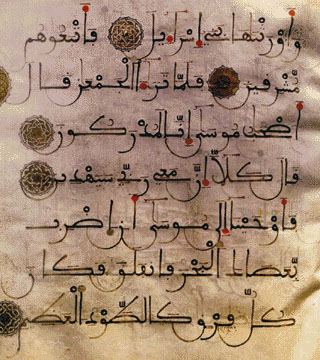 وأورثنها بني إسرٰيل فأتبعوهم
مشرقين فلما ترٰءا الجمعٰن قال
أصحٰب موسى إنا لمدركون
قال كلا إن معي ربي سيهدين
فأوحينا إلى موسى أن اضرب
بعصاك البحر فانفلق فكان
كل فرق كالطود العظيم